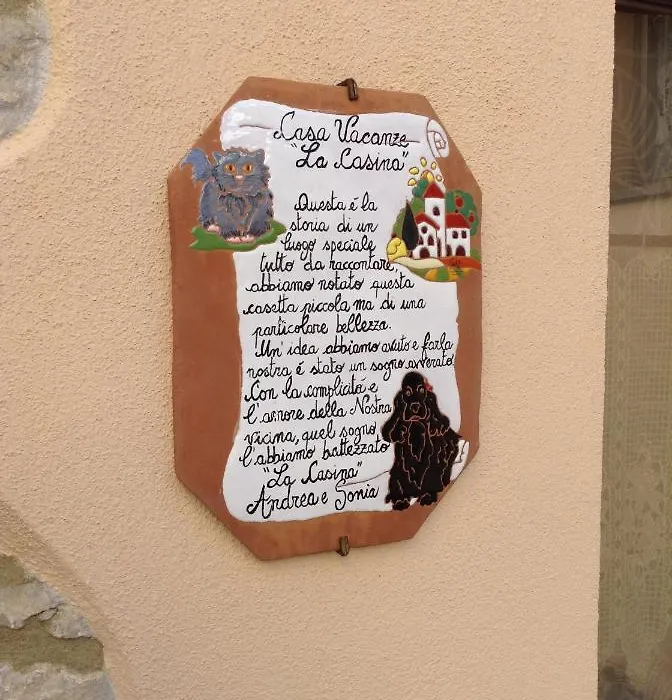 Casa Vacanze
"La Casina"
Questa é la
storia di un
luogo speciale
tutto da raccontare,
abbiamo notato questa
casetta piccola ma di una
particolare bellezza.
Un' idea abbiamo avuto e farla
nostra é stato un sogno avverato.
Con la complicitá e
l'amore della Nostra
vicina, quel sogno
l'abbiamo battezzato
"La Casina"
Andrea e Sonia